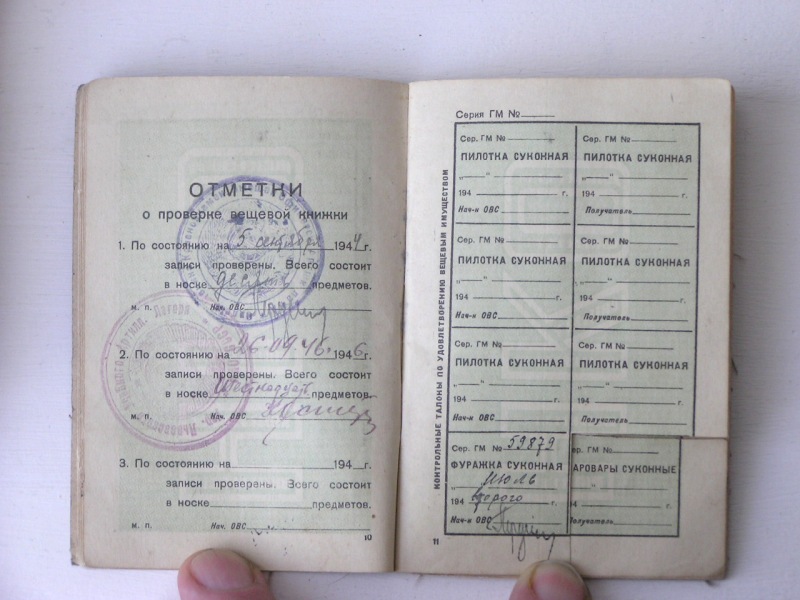 ОТМЕТКИ
о проверке вещевой книжки
1. По состоянию на 5 сентября 1944 г.
записи проверены. Всего состоит
в носке десять предметов.
м. п. Нач. ОВС
2. По состоянию на 26.09.46. 1946 г.
записи проверены. Всего состоит
в носке шестнадцать предметов.
м. п. Нач. ОВС
3. По состоянию на 194 г.
записи проверены. Всего состоит
в носке предметов.
м. п. Нач. ОВС
10
Серия ГМ №
КОНТРОЛЬНЫЕ ТАЛОНЫ ПО УДОВЛЕТВОРЕНИЮ ВЕЩЕВЫМ ИМУЩЕСТВОМ
Сер. ГМ №
ПИЛОТКА СУКОННАЯ
„ “
194 г.
Нач-к ОВС
Сер. ГМ №
ПИЛОТКА СУКОННАЯ
„ “
194 г.
Получатель
Сер. ГМ №
ПИЛОТКА СУКОННАЯ
„ “
194 г.
Нач-к ОВС
Сер. ГМ №
ПИЛОТКА СУКОННАЯ
„ “
194 г.
Получатель
Сер. ГМ №
ПИЛОТКА СУКОННАЯ
„ “
194 г.
Нач-к ОВС
Сер. ГМ №
ПИЛОТКА СУКОННАЯ
„ “
194 г.
Получатель
Сер. ГМ № 59879
ФУРАЖКА СУКОННАЯ
июль
194 второго
Нач-к ОВС
ер. ГМ №
АРОВАРЫ СУКОННЫЕ
“
194 г.
Получатель
11